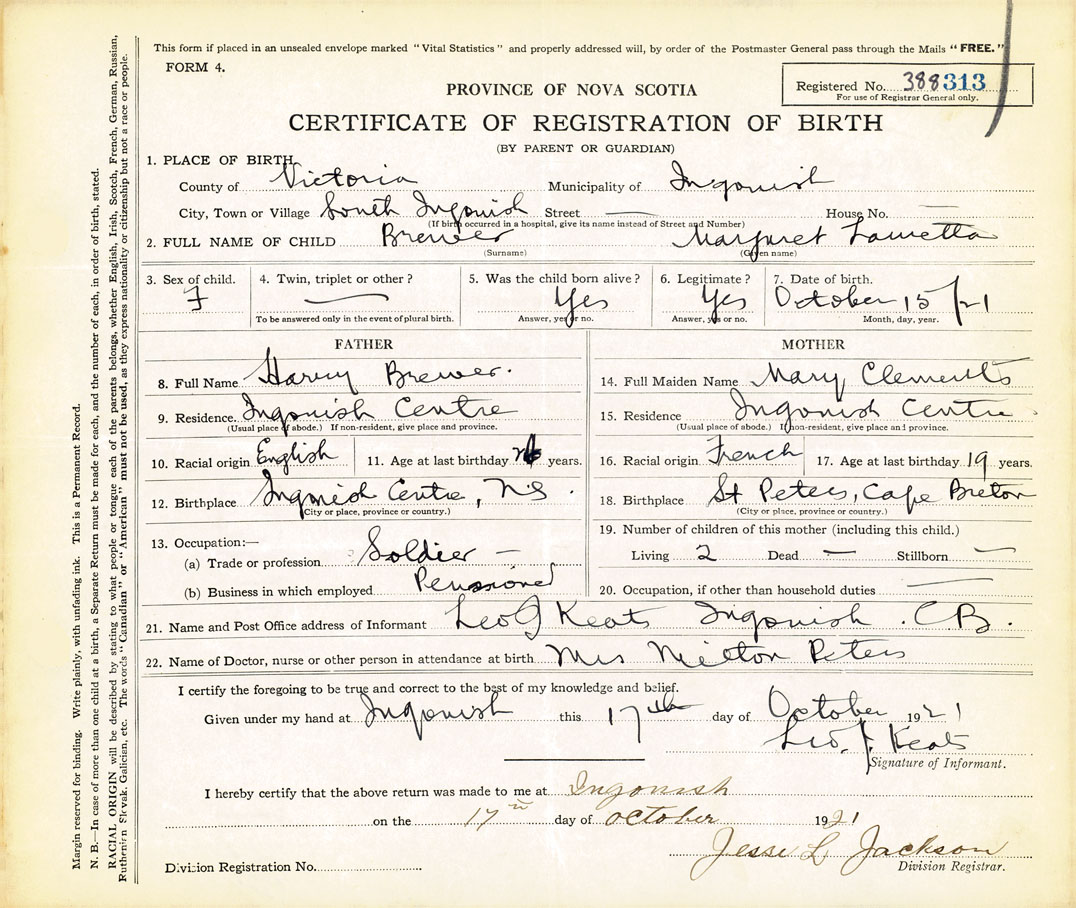 This form if placed in an unsealed envelope marked "Vital Statistics" and properly addressed will, by order of the Postmaster General pass through the Mails "FREE."
FORM 4.
Registered No. 388313
For use of Registrar General only.
PROVINCE OF NOVA SCOTIA
CERTIFICATE OF REGISTRATION OF BIRTH
(BY PARENT OR GUARDIAN)
1. PLACE OF BIRTH
County of Victoria Municipality of Ingonish
City, Town or Village South Ingonish Street — House No. —
(If birth occurred in a hospital, give its name instead of Street and Number)
2. FULL NAME OF CHILD Brewer Margaret Lauretta
(Surname) (Given name)
3. Sex of child. 4. Twin, triplet or other? 5. Was the child born alive? 6. Legitimate? 7. Date of birth.
F — Yes Yes October 15/21
To be answered only in the event of plural birth. Answer, yes or no. Answer, yes or no. Month, day, year.
FATHER
8. Full Name Harvey Brewer.
9. Residence Ingonish Centre
(Usual place of abode.) If non-resident, give place and province.
10. Racial origin English 11. Age at last birthday years.
12. Birthplace Ingonish Centre, N.S.
(City or place, province or country.)
13. Occupation:—
(a) Trade or profession Soldier —
(b) Business in which employed Pensioned
MOTHER
14. Full Maiden Name Mary Clements
15. Residence Ingonish Centre
(Usual place of abode.) If non-resident, give place and province.
16. Racial origin French 17. Age at last birthday 19 years.
18. Birthplace St Peters, Cape Breton
(City or place, province or country.)
19. Number of children of this mother (including this child.)
Living 2 Dead — Stillborn —
20. Occupation, if other than household duties —
21. Name and Post Office address of Informant Leo J Keats Ingonish . C.B.
22. Name of Doctor, nurse or other person in attendance at birth Mrs Milton Peters
I certify the foregoing to be true and correct to the best of my knowledge and belief.
Given under my hand at Ingonish this 17th day of October 1921
Leo. J. Keats
Signature of Informant.
I hereby certify that the above return was made to me at Ingonish
on the 17th day of October 1921
Jesse L Jackson
Division Registrar.
Division Registration No.
Margin reserved for binding. Write plainly, with unfading ink. This is a Permanent Record.
N. B.—In case of more than one child at a birth, a Separate Return must be made for each, and the number of each, in order of birth, stated.
RACIAL ORIGIN will be described by stating to what people or tongue each of the parents belongs, whether English, Irish, Scotch, French, German, Russian,
Ruthenian Slovak, Galician, etc. The words "Canadian" or "American" must not be used, as they express nationality or citizenship but not a race or people.